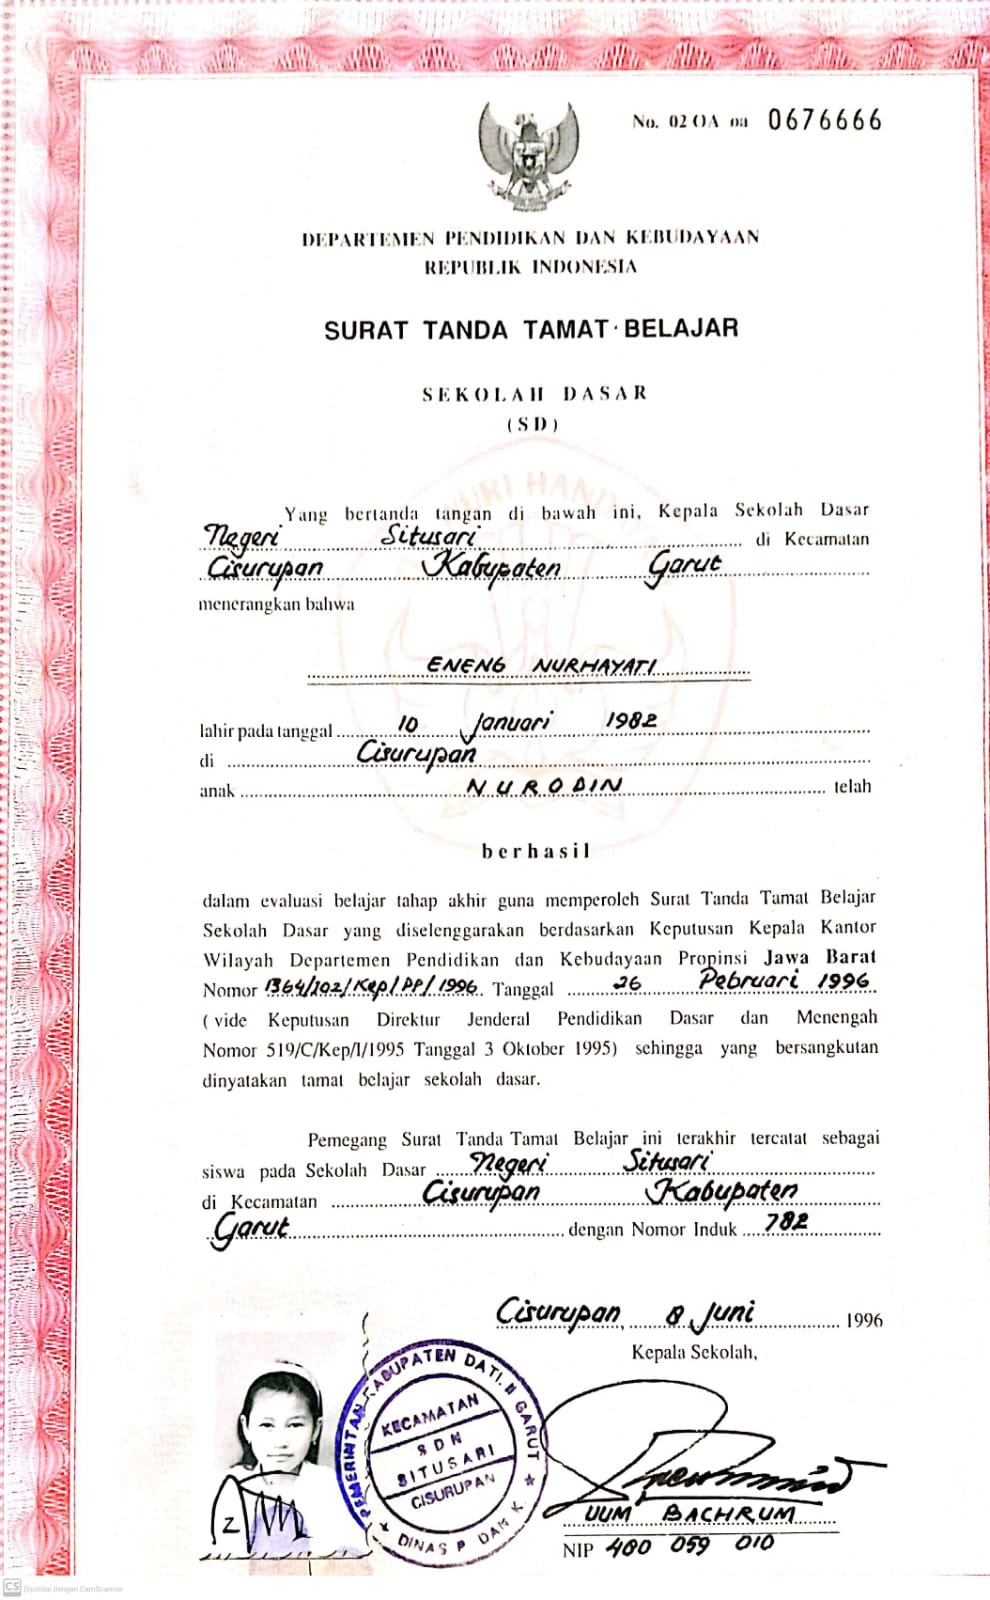 No. 02 OA oa 0676666
DEPARTEMEN PENDIDIKAN DAN KEBUDAYAAN
REPUBLIK INDONESIA
SURAT TANDA TAMAT BELAJAR
SEKOLAH DASAR
(SD)
Yang bertanda tangan di bawah ini, Kepala Sekolah Dasar
Negeri Situsari di Kecamatan
Cisurupan Kabupaten Garut
menerangkan bahwa
ENENG NURHAYATI
lahir pada tanggal 10 Januari 1982
di Cisurupan
anak NURODIN telah
berhasil
dalam evaluasi belajar tahap akhir guna memperoleh Surat Tanda Tamat Belajar
Sekolah Dasar yang diselenggarakan berdasarkan Keputusan Kepala Kantor
Wilayah Departemen Pendidikan dan Kebudayaan Propinsi Jawa Barat
Nomor 1364/102/Kep/PP/1996. Tanggal 26 Pebruari 1996
( vide Keputusan Direktur Jenderal Pendidikan Dasar dan Menengah
Nomor 519/C/Kep/I/1995 Tanggal 3 Oktober 1995) sehingga yang bersangkutan
dinyatakan tamat belajar sekolah dasar.
Pemegang Surat Tanda Tamat Belajar ini terakhir tercatat sebagai
siswa pada Sekolah Dasar Negeri Situsari
di Kecamatan Cisurupan Kabupaten
Garut dengan Nomor Induk 782
Cisurupan, 8 Juni 1996
Kepala Sekolah,
PEMERINTAH KABUPATEN DATI. II GARUT
KECAMATAN
SDN
SITUSARI
CISURUPAN
DINAS P DAN K.
UUM BACHRUM
NIP 400 059 010
CS Dipindai dengan CamScanner